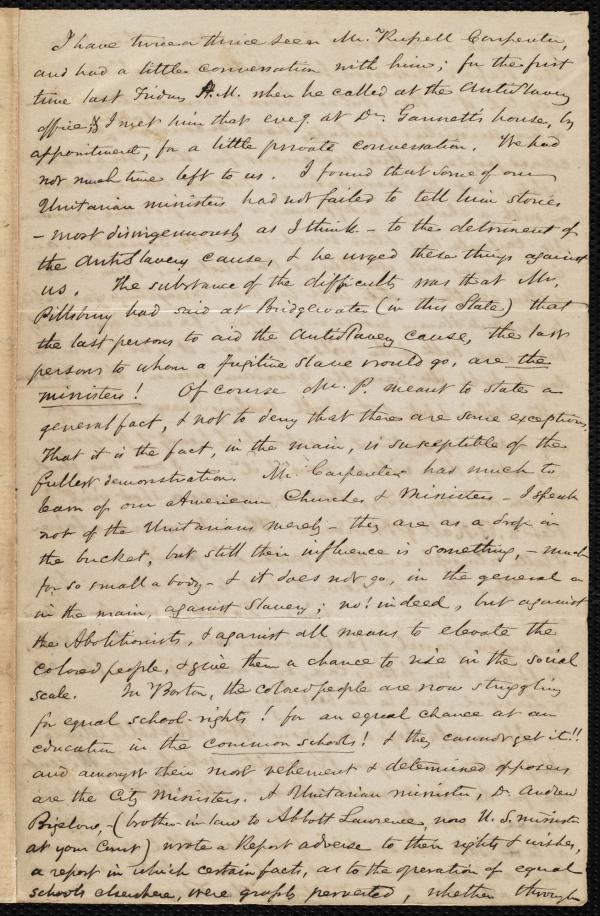 I have twice or thrice seen Mr. Russell Carpenter,
and had a little conversation with him; for the first
time last Friday A.M. when he called at the Antislavery
office, & I met him that eveg. at Dr. Gannett's house, by
appointment, for a little private conversation. We had
not much time left to us. I found that some of our
Unitarian ministers had not failed to tell him stories
- most disingenuously as I think - to the detriment of
the AntiSlavery cause, & he urged these things against
us. The substance of the difficulty was that Mr.
Pillsbury had said at Bridgewater (in this State) that
the last persons to aid the AntiSlavery cause, the last
persons to whom a fugitive slave would go, are the
ministers! Of course Mr. P. meant to state a
general fact, & not to deny that there are some exceptions.
That it is the fact, in the main, is susceptible of the
fullest demonstration. Mr. Carpenter has much to
learn of our American Churches & Ministers - I speak
not of the Unitarians merely - they are as a drop in
the bucket, but still their influence is something, - much
for so small a body - & it does not go, in the general or
in the main, against Slavery; no! indeed, but against
the Abolitionists, & against all means to elevate the
colored people, & give them a chance to rise in the social
scale. In Boston, the colored people are now struggling
for equal school-rights! for an equal chance at an
education in the common schools! & they cannot get it!!
and amongst their most vehement & determined opposers
are the City Ministers. A Unitarian minister, Dr. Andrew
Bigelow, - (brother-in-law to Abbott Lawrence, now U.S. minister
at your Court) wrote a Report adverse to their rights & wishes,
a report in which certain facts, as to the operation of equal
schools elsewhere, were grossly perverted, whether through